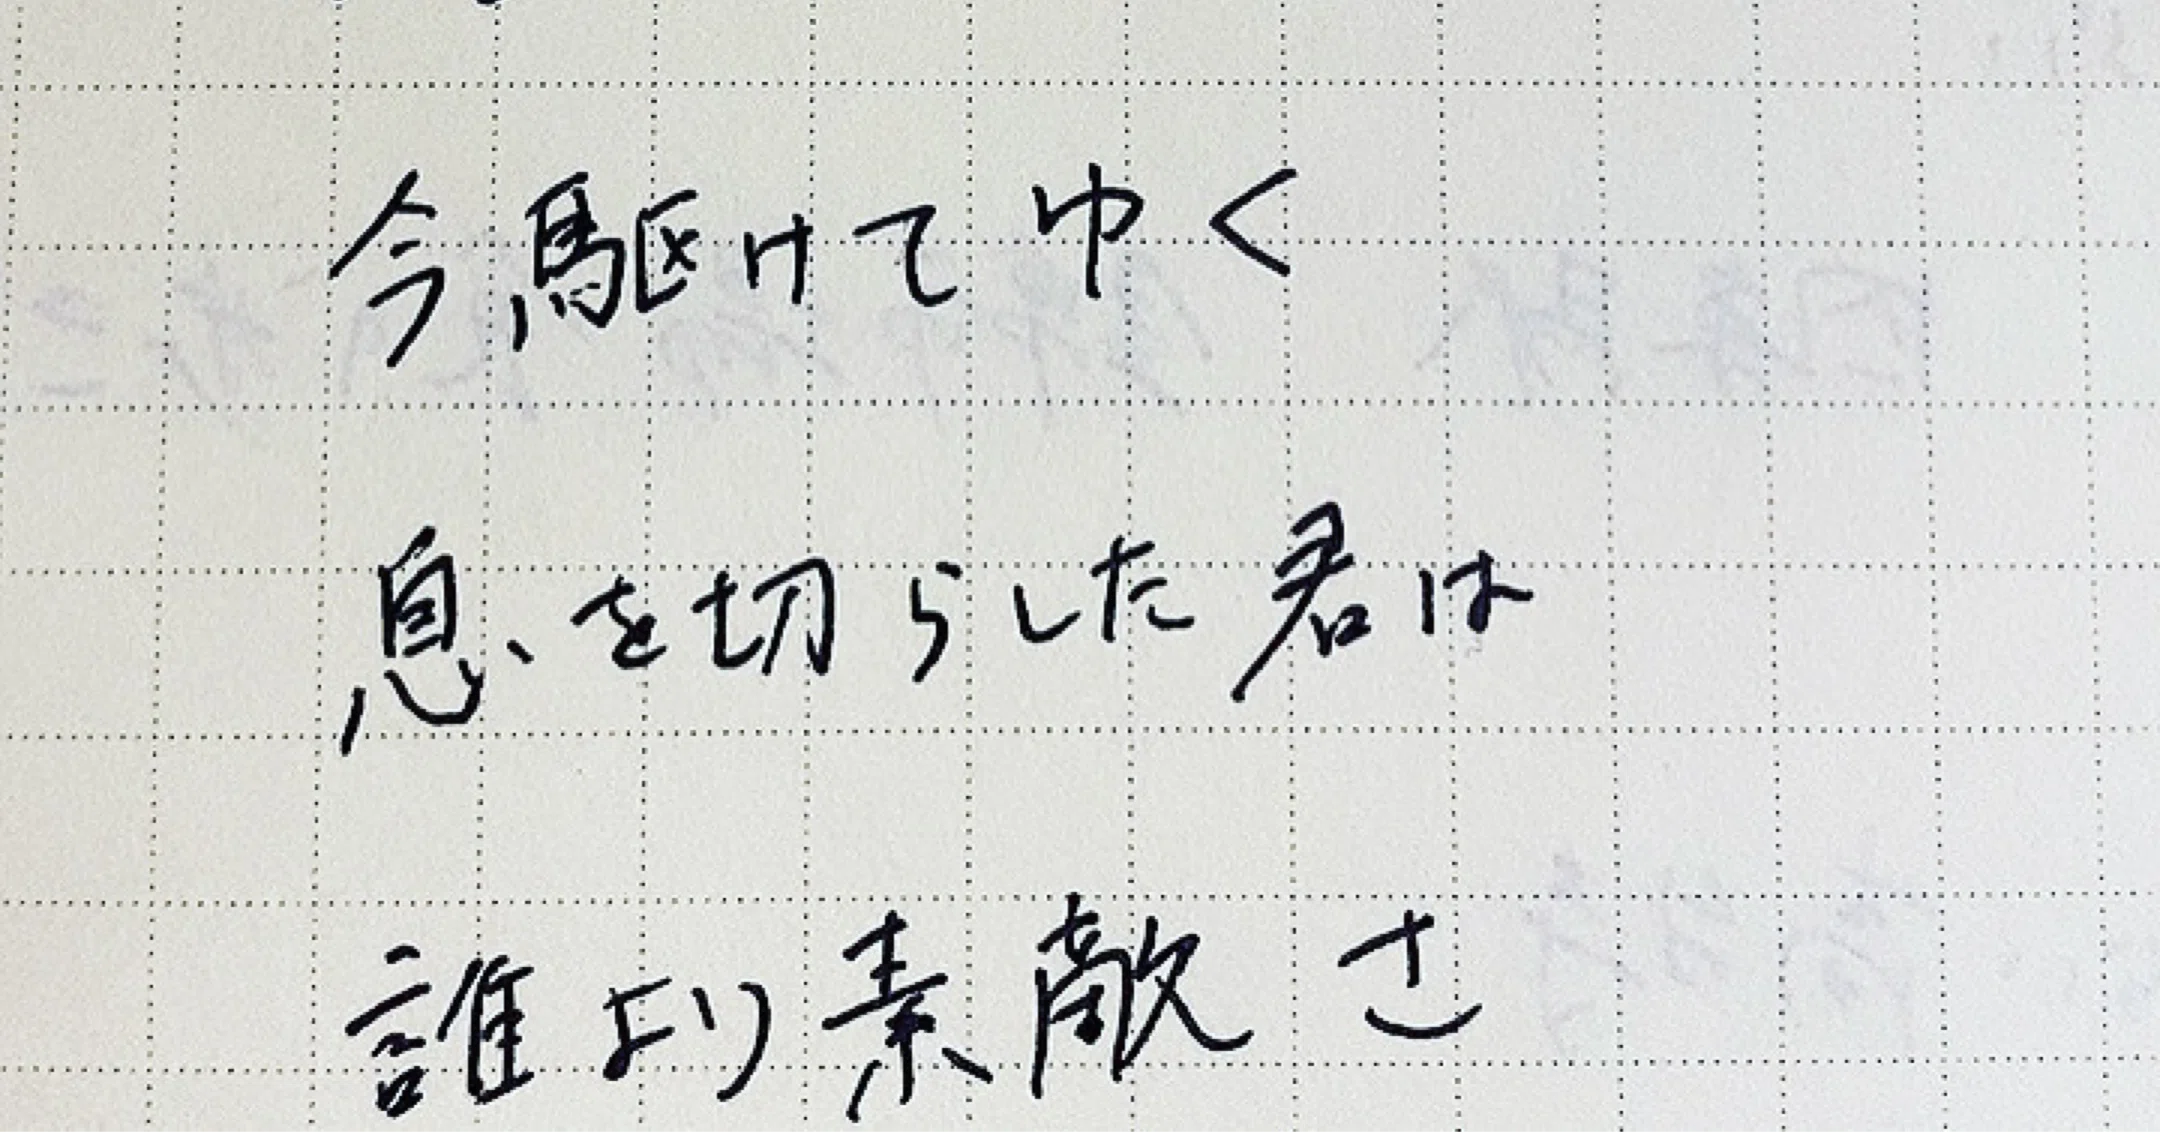 今駆けてゆく
息を切らした君は
誰より素敵さ